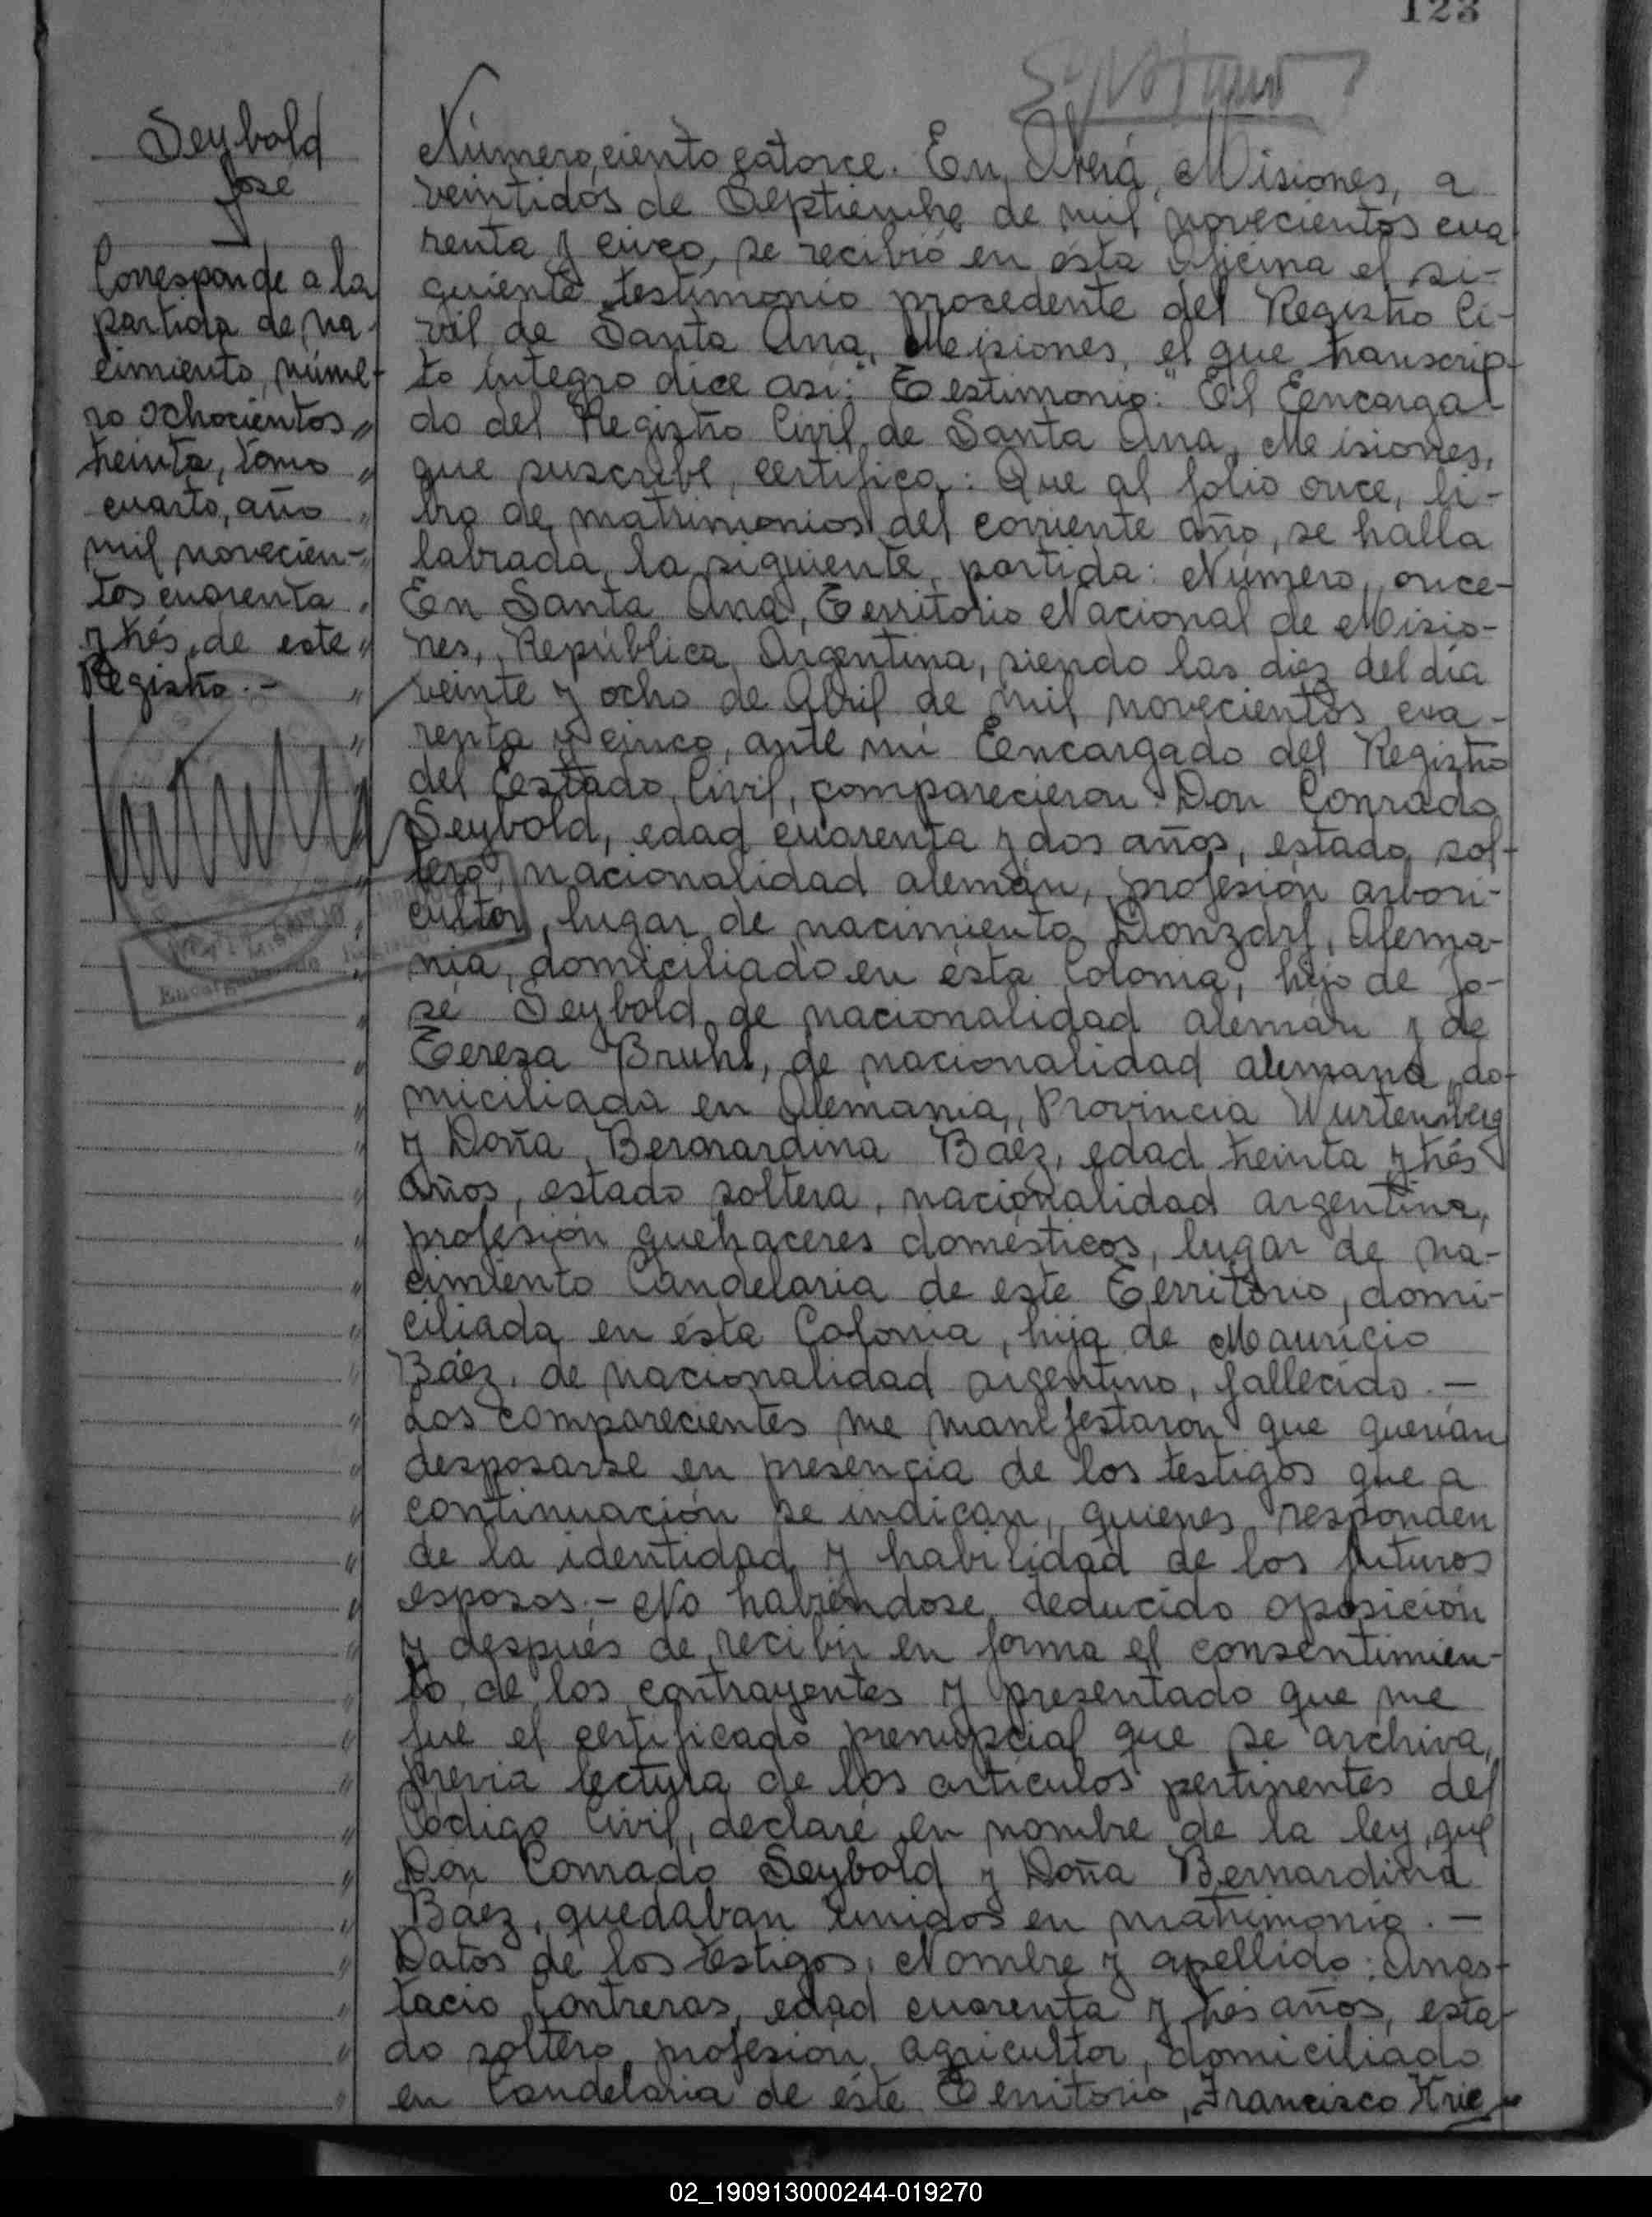 123
Seybold
José
Corresponde a la
partida de na-
cimiento, núme-
ro ochocientos
treinta, tomo
cuarto, año
mil novecien-
tos cuarenta
y trés, de este
Registro.-
Número, ciento catorce. En Oberá, Misiones, a
veintidós de Septiembre de mil novecientos cua
renta y cinco, se recibió en ésta Oficina el si-
guiente testimonio procedente del Registro Ci-
vil de Santa Ana, Misiones, el que transcrip-
to íntegro dice así: "Testimonio:" El Encarga-
do del Registro Civil de Santa Ana, Misiones,
que suscribe, certifica: Que al folio once, li-
bro de matrimonios del corriente año, se halla
labrada la siguiente partida: Número, once-
En Santa Ana, Territorio Nacional de Misio-
nes, República Argentina, siendo las diez del día
veinte y ocho de Abril de mil novecientos cua-
renta y cinco, ante mí Encargado del Registro
del Estado Civil, comparecieron: Don Conrado
Seybold, edad cuarenta y dos años, estado sol-
tero, nacionalidad alemán, profesión arbori-
cultor, lugar de nacimiento Donzdrf, Alema-
nia, domiciliado en ésta Colonia, hijo de Jo-
sé Seybold de nacionalidad alemán y de
Teresa Bruhl, de nacionalidad alemana, do-
miciliada en Alemania, Provincia Wurtenberg
y Doña Bernardina Báez, edad treinta y trés
años, estado soltera, nacionalidad argentina,
profesión quehaceres domésticos, lugar de na-
cimiento Candelaria de este Territorio, domi-
ciliada en ésta Colonia, hija de Mauricio
Báez, de nacionalidad argentino, fallecido.-
Los comparecientes me manifestaron que querían
desposarse en presencia de los testigos que a
continuación se indican, quienes responden
de la identidad y habilidad de los futuros
esposos.- No habiéndose deducido oposición
y después de recibir en forma el consentimien-
to de los contrayentes y presentado que me
fue el certificado prenupcial que se archiva,
previa lectura de los artículos pertinentes del
Código Civil, declaré en nombre de la ley, que
Don Conrado Seybold y Doña Bernardina
Báez, quedaban unidos en matrimonio.-
Datos de los testigos, Nombre y apellido: Anas-
tacio Contreras, edad cuarenta y trés años, esta-
do soltero, profesión agricultor, domiciliado
en Candelaria de éste Territorio, Francisco Krie-
02_190913000244-019270